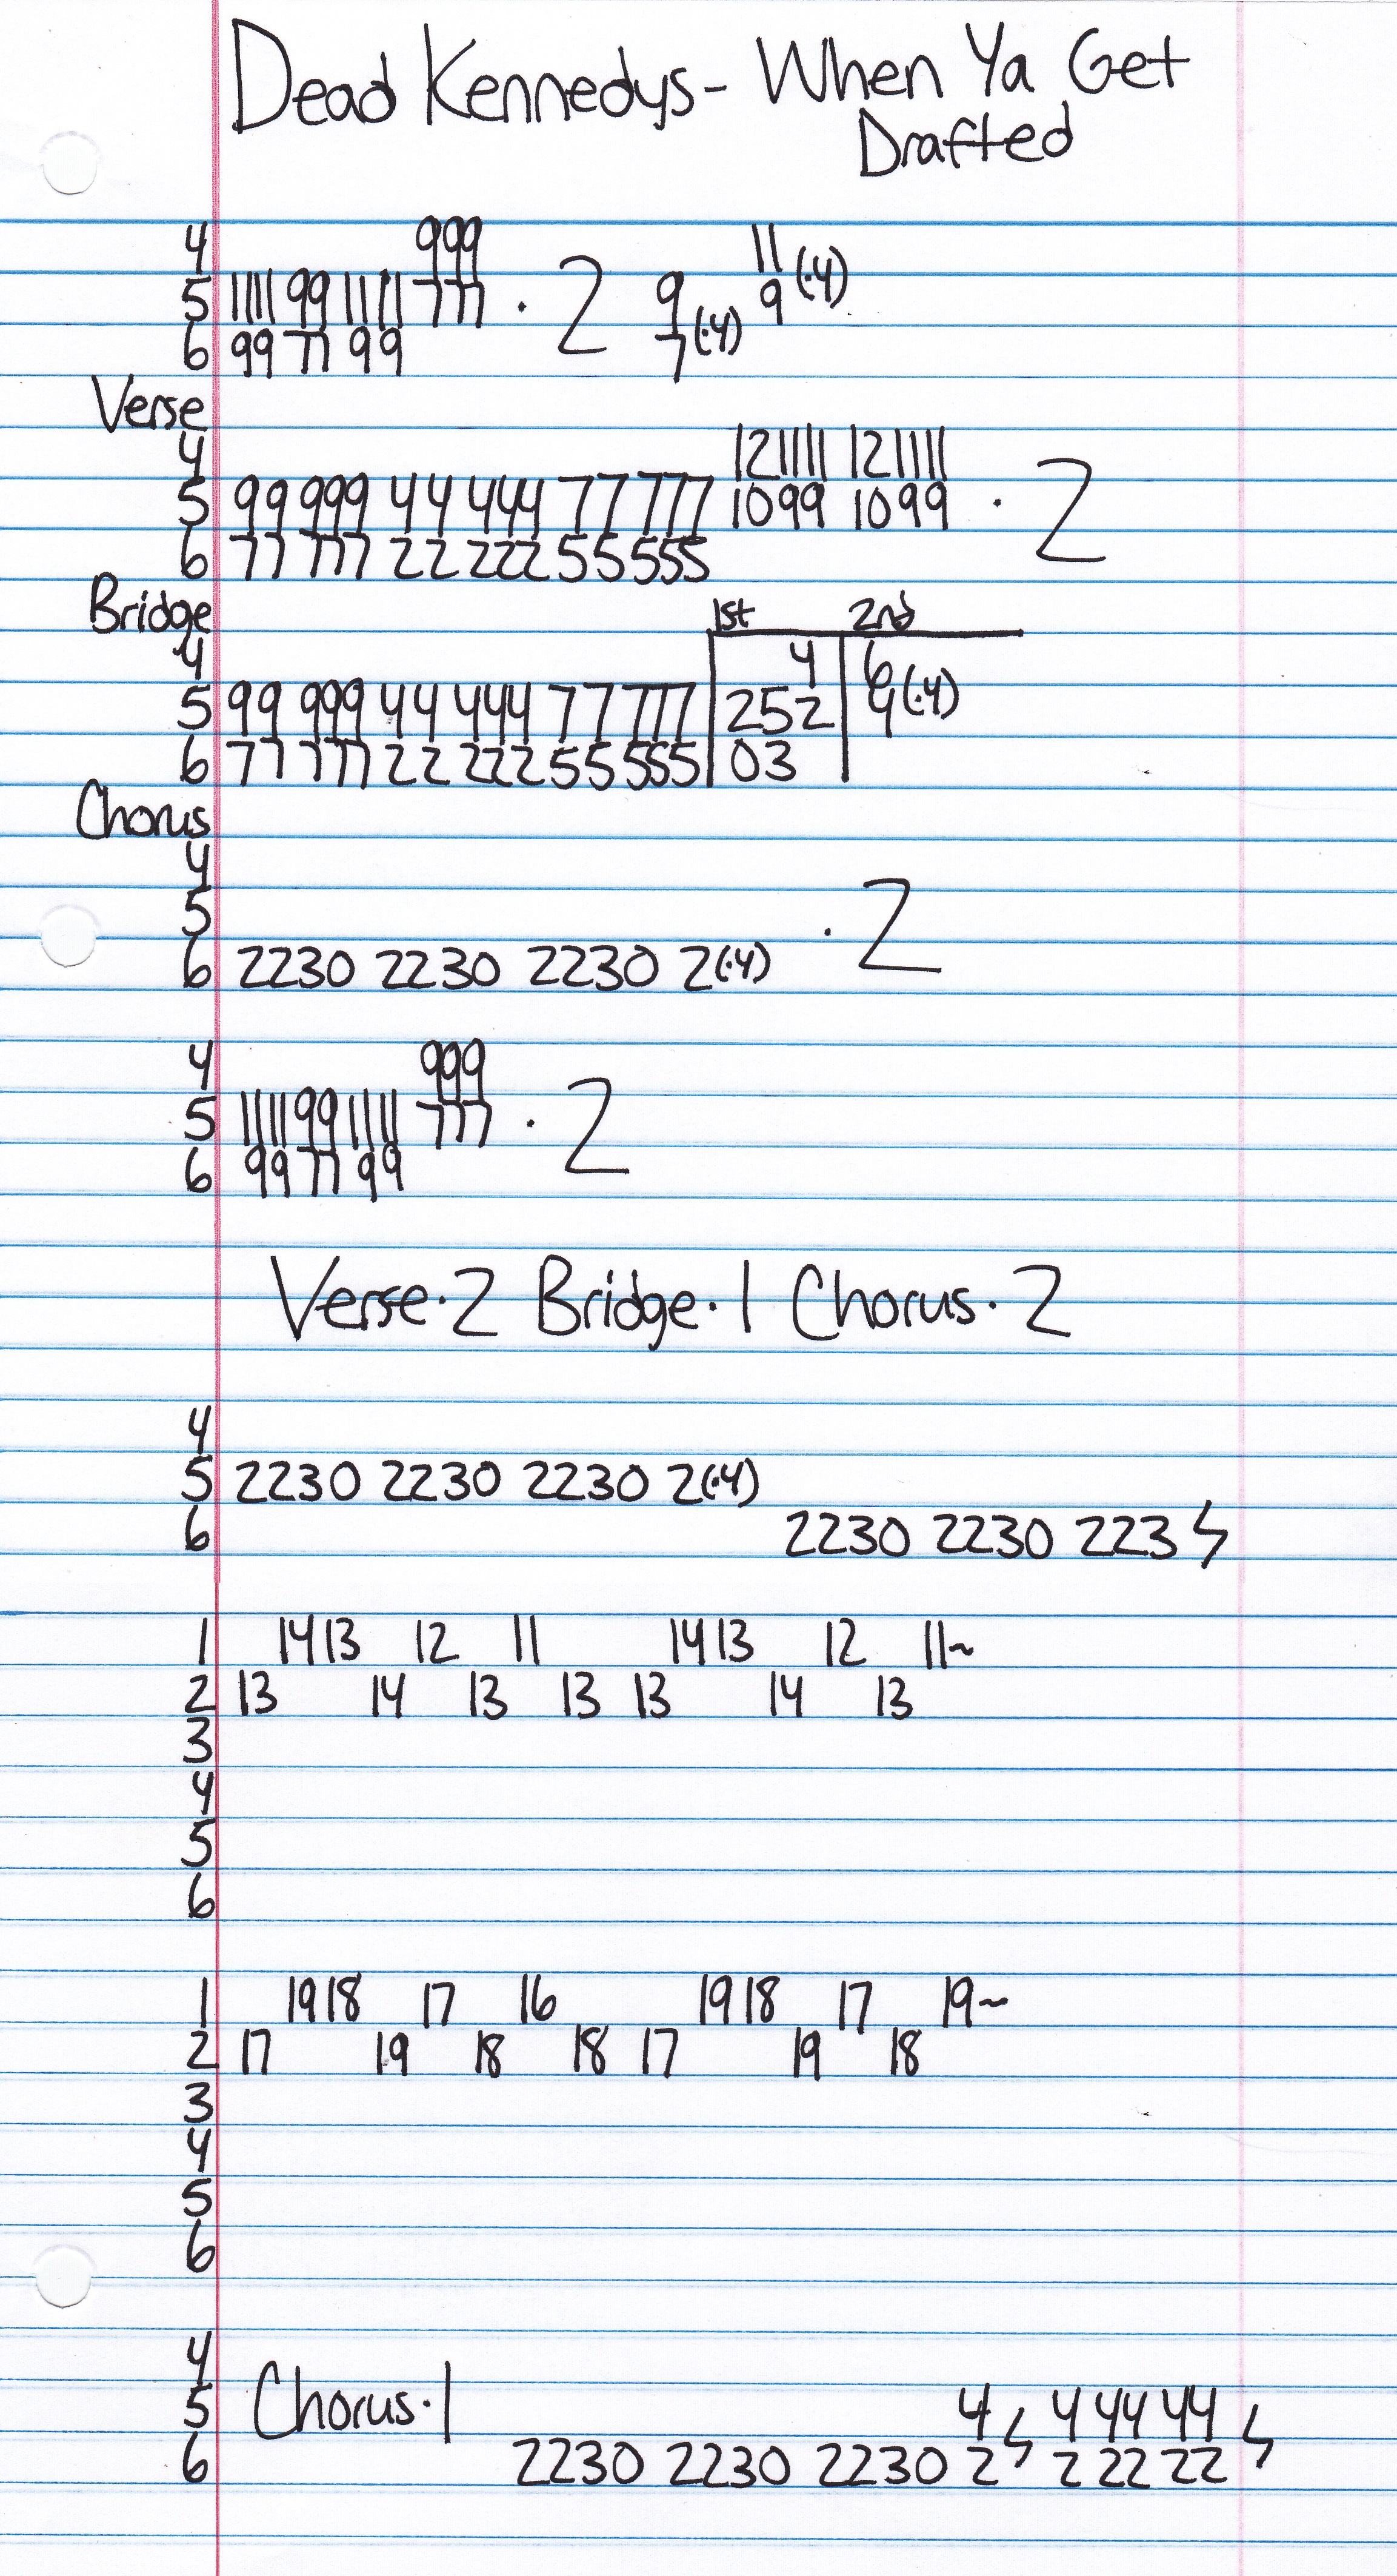 Dead Kennedys- When Ya Get
Drafted
4 999
5 1111 99 1111 777 · 2 9 11
6 99 77 99 7(·4) 9(·4)
Verse
4 121111 121111
5 99 999 44 444 77 777 1099 1099 · 2
6 77 777 22 222 55 555
Bridge 1st 2nd
4 4 6
5 99 999 44 444 77 777 252 4(·4)
6 77 777 22 222 55 555 03
Chorus
4
5 · 2
6 2230 2230 2230 2(·4)
4 999
5 1111 99 1111 777 · 2
6 99 77 99
Verse·2 Bridge·1 Chorus·2
4
5 2230 2230 2230 2(·4)
6 2230 2230 223
1 1413 12 11 1413 12 11~
2 13 14 13 13 13 14 13
3
4
5
6
1 1918 17 16 1918 17 19~
2 17 19 18 18 17 19 18
3
4
5
6
4
5 Chorus·1 4 4 44 44
6 2230 2230 2230 2 2 22 22